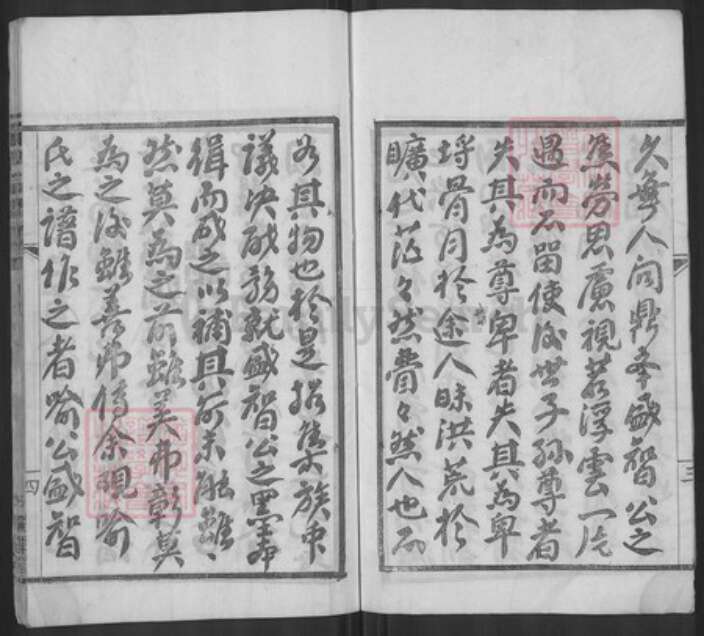 久無人問鼎本盛智公之
焦勞思慮視若浮雲一片
過而不留使後世子孫尊者
失其為尊卑者失其為卑
將骨月於途人昧洪荒於
曠代茫々然費々然人也而
三
忘其物也於是招集族中
議決成訪就盛智公之墨本
緝而成之以補其前未能雖
然莫為之前雖美弗彰莫
為之後雖善弗傳余觀喻
氏之譜作之者喻公盛智
四